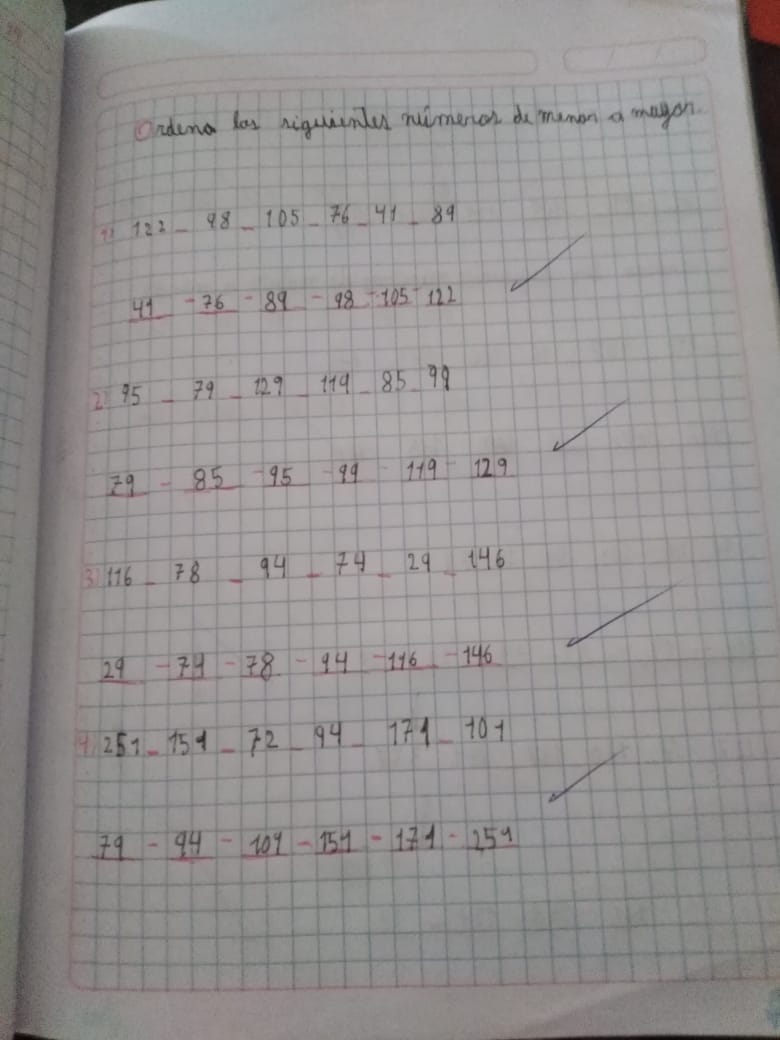 Ordena los siguientes números de menor a mayor.
1) 122 - 98 - 105 - 76 - 41 - 89
41 - 76 - 89 - 98 - 105 - 122
2) 95 - 79 - 129 - 119 - 85 - 99
79 - 85 - 95 - 99 - 119 - 129
3) 116 - 78 - 94 - 74 - 29 - 146
29 - 74 - 78 - 94 - 116 - 146
4) 251 - 151 - 72 - 94 - 171 - 101
79 - 94 - 101 - 151 - 171 - 251